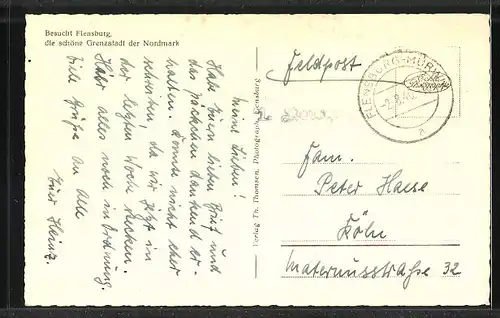 Besucht Flensburg,
die schöne Grenzstadt der Nordmark
Meine Lieben!
Habe Euren lieben Brief und
das Päckchen dankend er-
halten. Komme nicht eher
schreiben, da wir jetzt in
der letzten Woche stecken.
Habe alles noch in Ordnung.
Viele Grüße an Alle
Euer Heinz.
Verlag Th. Thomsen, Photograph, Flensburg
Feldpost
FLENSBURG-MÜRWIK
a
Fam.
Peter Haese
Köln
Maternusstraße 32